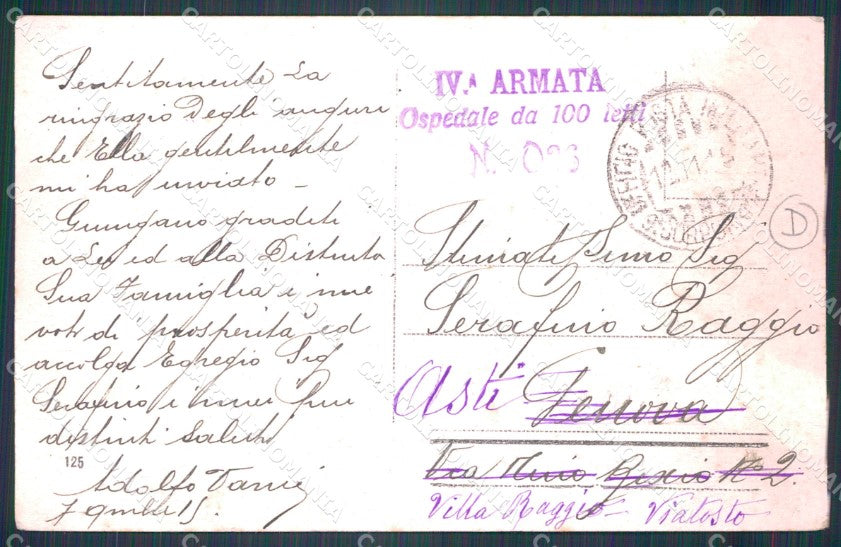 Sentitamente La
ringrazio Degli auguri
che Ella gentilmente
mi ha inviato –
Giungano graditi
a Lei ed alla Distinta
Sua Famiglia i miei
voti di prosperità, ed
accolga Egregio Sig
Serafino i miei più
distinti saluti
125
Adolfo
IV.ª ARMATA
Ospedale da 100 letti
N.
Stimatissimo Sig
Serafino Raggio
Asti Genova
Via Nino Bixio No 2.
Villa Raggio Viatosto
D
CARTOLINOMANIA